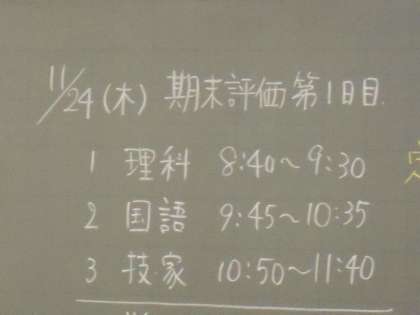 11/24(木) 期末評価第1日目.
1 理科 8:40~9:30
2 国語 9:45~10:35
3 技.家 10:50~11:40